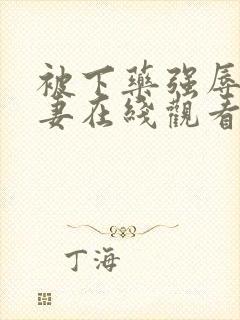 被下藥强辱
妻在綫觀看
丁海